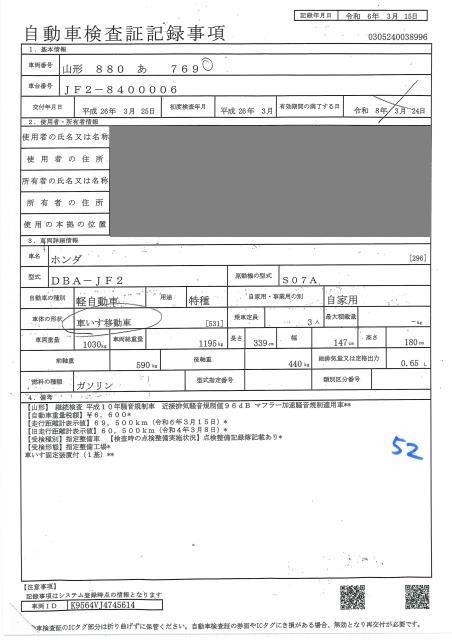 記録年月日 令和 6年 3月 15日
自動車検査証記録事項
0305240038996
1. 基本情報
車両番号 山形 880 あ 769
車台番号 JF2-8400006
交付年月日 平成 26年 3月 25日 初度検査年月 平成 26年 3月 有効期間の満了する日 令和 8年 3月 24日
2. 使用者・所有者情報
使用者の氏名又は名称
使用者の住所
所有者の氏名又は名称
所有者の住所
使用の本拠の位置
3. 車両詳細情報
車名 ホンダ [296]
型式 DBA-JF2 原動機の型式 S07A
自動車の種別 軽自動車 用途 特種 自家用・事業用の別 自家用
車体の形状 車いす移動車 [531] 乗車定員 3人 最大積載量 -kg
車両重量 1030kg 車両総重量 1195kg 長さ 339cm 幅 147cm 高さ 180cm
前軸重 590kg 後軸重 440kg 総排気量又は定格出力 0.65 L
燃料の種類 ガソリン 型式指定番号 類別区分番号
4. 備考
【山形】 継続検査 平成10年騒音規制車 近接排気騒音規制値96dB マフラー加速騒音規制適用車**
【自動車重量税額】¥6,600*
【走行距離計表示値】69,500km(令和6年3月15日)*
【旧走行距離計表示値】60,500km(令和4年3月8日)*
【受検種別】指定整備車 【検査時の点検整備実施状況】点検整備記録簿記載あり*
【受検形態】指定整備工場*
車いす固定装置付(1基)**
52
【注意事項】
記録事項はシステム登録時点の情報となります
車両ID K9564VJ4745614
車検査証のICタグ部分は折り曲げずに保管ください。自動車検査証の券面やICタグにき損がある場合、無効となり再交付が必要です。